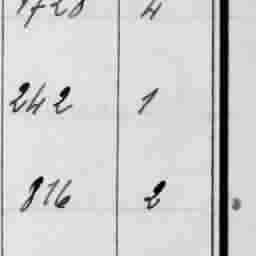 1728 4
242 1
816 2